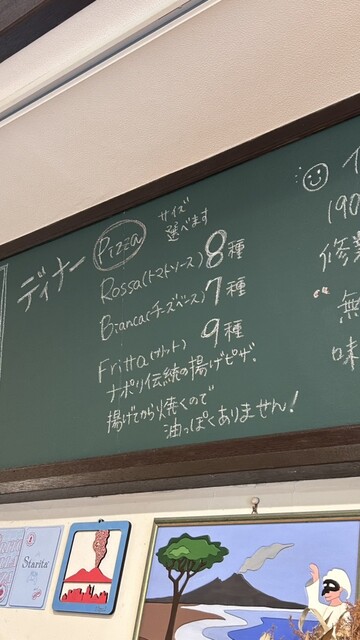 ディナー
Pizza
サイズ
選べます
Rossa(トマトソース) 8種
Bianca(チーズベース) 7種
Fritta(フリット) 9種
ナポリ伝統の揚げピザ、
揚げてから焼くので
油っぽくありません!
190
修業
無
味
Starita